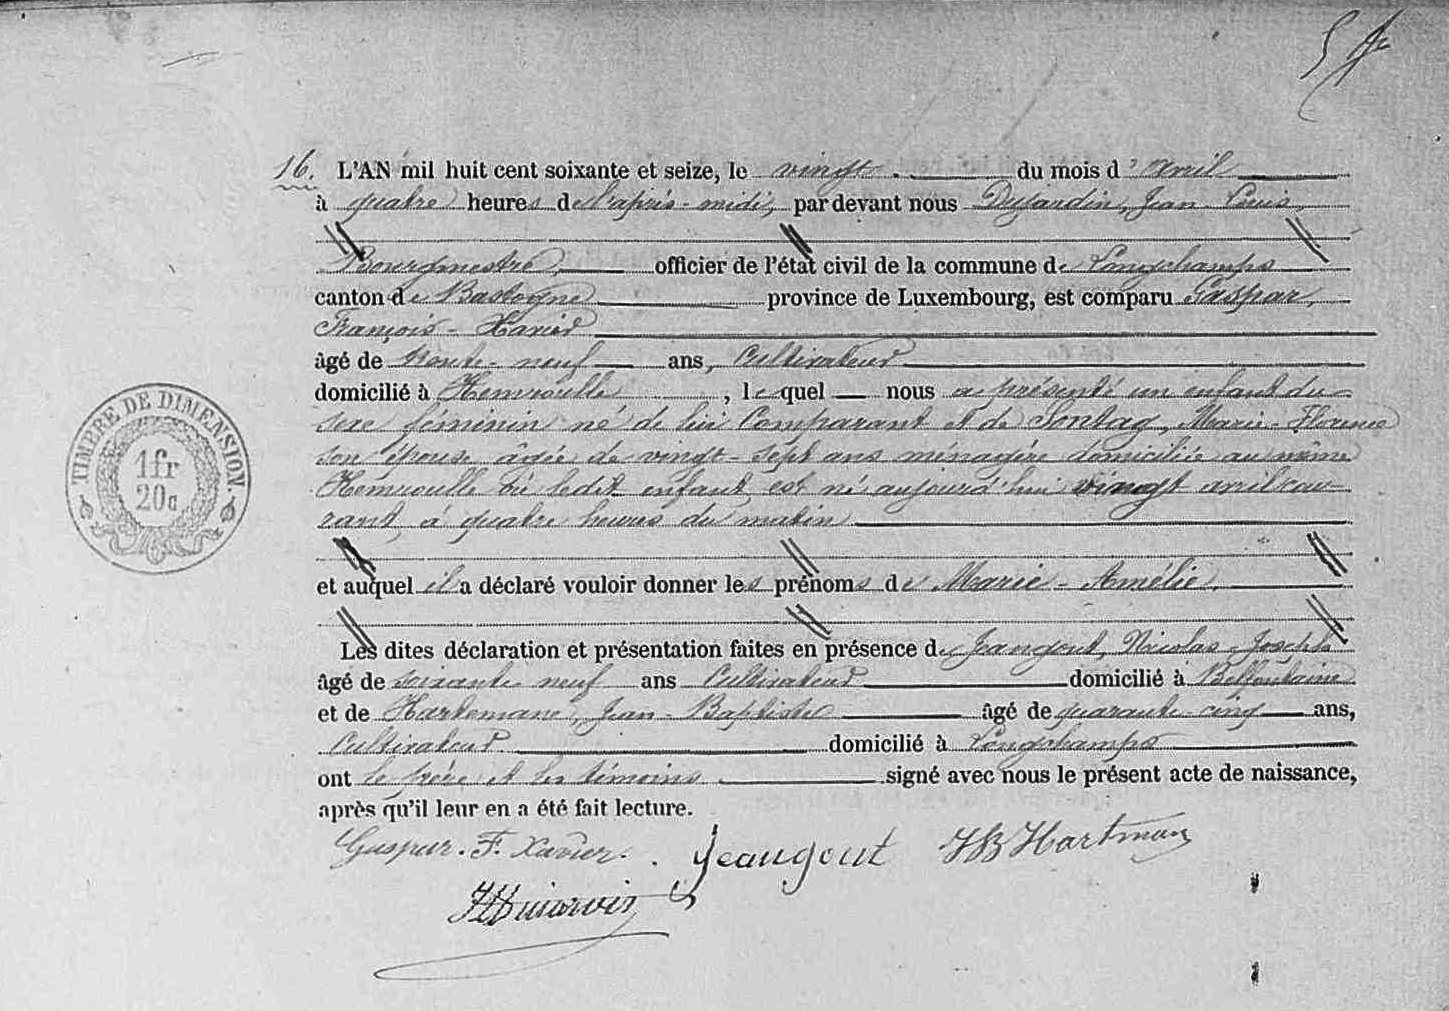 16. L'AN mil huit cent soixante et seize, le vingt du mois d'avril
à quatre heures de l'après-midi, par devant nous Dujardin, Jean-Louis,
Bourgmestre, officier de l'état civil de la commune de Longchamps
canton de Bastogne province de Luxembourg, est comparu Gaspar,
François-Xavier
âgé de trente-neuf ans, Cultivateur
domicilié à Hemroulle, le quel nous a présenté un enfant du
sexe féminin né de lui Comparant et de Sontag, Marie-Florence
son épouse, âgée de vingt-sept ans ménagère domiciliée au même
Hemroulle où ledit enfant est né aujourd'hui vingt avril cou-
rant, à quatre heures du matin
et auquel il a déclaré vouloir donner les prénoms de Marie-Amélie.
Les dites déclaration et présentation faites en présence de Jeangout, Nicolas-Joseph
âgé de soixante neuf ans Cultivateur domicilié à Bellfontaine
et de Hartemane, Jean-Baptiste âgé de quarante cinq ans,
Cultivateur domicilié à Longchamps
ont le père et les témoins signé avec nous le présent acte de naissance,
après qu'il leur en a été fait lecture.
Gaspar. F. Xavier. Jeangout JB Hartman
TIMBRE DE DIMENSION
1fr
20c